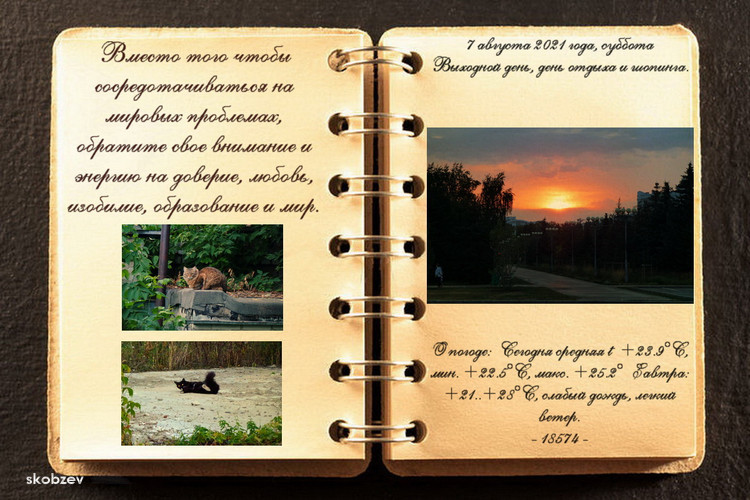 Вместо того чтобы
сосредотачиваться на
мировых проблемах,
обратите свое внимание и
энергию на доверие, любовь,
изобилие, образование и мир.
7 августа 2021 года, суббота
Выходной день, день отдыха и шопинга.
О погоде: Сегодня средняя t +23.9°C,
мин. +22.5°C, макс. +25.2° Завтра:
+21..+23°C, слабый дождь, легкий
ветер.
- 18574 -
skobzev